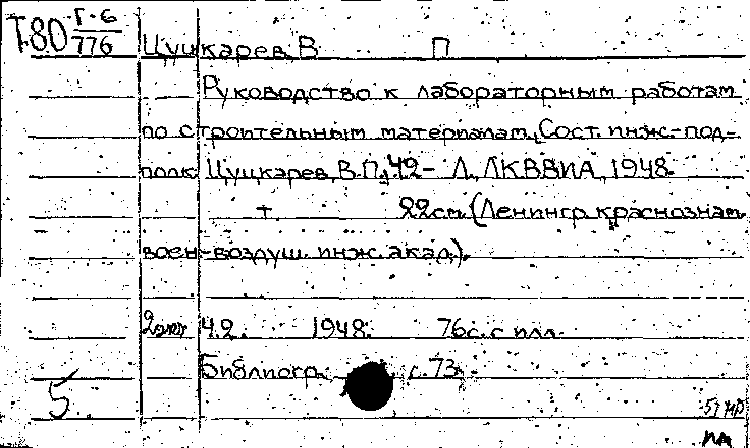 Т-80 Г-6/776
Цуцкарев В П
Руководство к лабораторным работам
по строительным материалам. Сост. инж.-под-
полк. Цуцкарев, В.П. Ч.2- Л., ЛКВВИА, 1948
т. 22см. (Ленингр. краснознам.
воен-воздуш. инж. акад.).
2экз Ч.2. 1948. 76с. с илл.
Библиогр. с.73
5